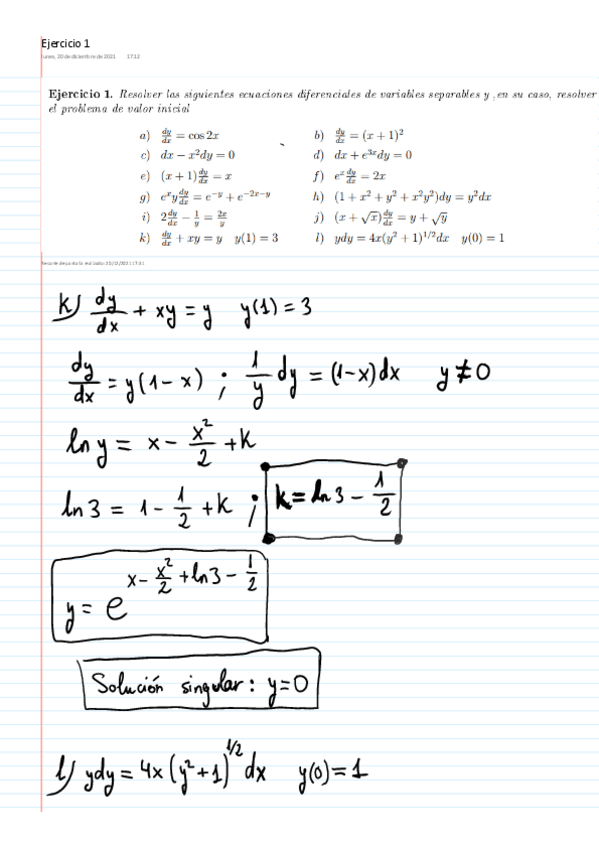 Ejercicio 1
lunes, 20 de diciembre de 2021 17:12
Ejercicio 1. Resolver las siguientes ecuaciones diferenciales de variables separables y ,en su caso, resolver
el problema de valor inicial
a) dy/dx = cos 2x b) dy/dx = (x + 1)²
c) dx − x²dy = 0 d) dx + e³ˣdy = 0
e) (x + 1)dy/dx = x f) eˣ dy/dx = 2x
g) eˣy dy/dx = e⁻ʸ + e⁻²ˣ⁻ʸ h) (1 + x² + y² + x²y²)dy = y²dx
i) 2 dy/dx − 1/y = 2x/y j) (x + √x) dy/dx = y + √y
k) dy/dx + xy = y y(1) = 3 l) ydy = 4x(y² + 1)^1/2 dx y(0) = 1
k) dy/dx + xy = y y(1) = 3
dy/dx = y(1 − x) ; 1/y dy = (1−x)dx y ≠ 0
ln y = x − x²/2 + k
ln 3 = 1 − 1/2 + k ; k = ln 3 − 1/2
y = e^(x − x²/2 + ln 3 − 1/2)
Solución singular: y = 0
l) ydy = 4x(y² + 1)^1/2 dx y(0) = 1